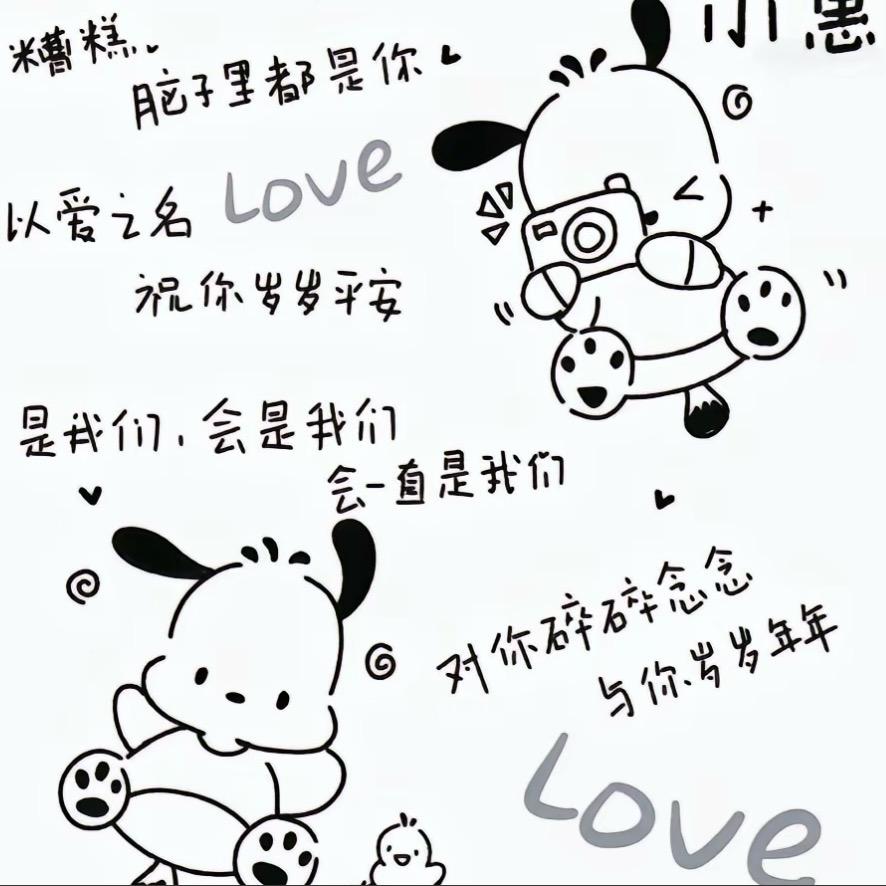 糟糕
脑子里都是你
以爱之名 Love
祝你岁岁平安
是我们,会是我们
会一直是我们
对你碎碎念念
与你岁岁年年
Love